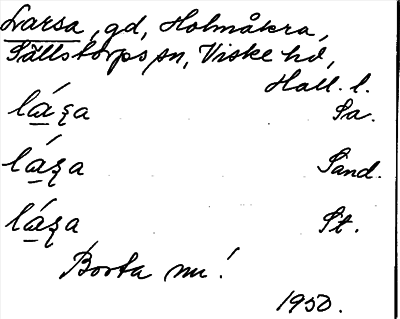 Larsa, gd, Holmåkra,
Sällstorps sn, Viske hd,
Hall. l.
láʂa Sa.
láʂa Sand.
láʂa St.
Borta nu!
1950.